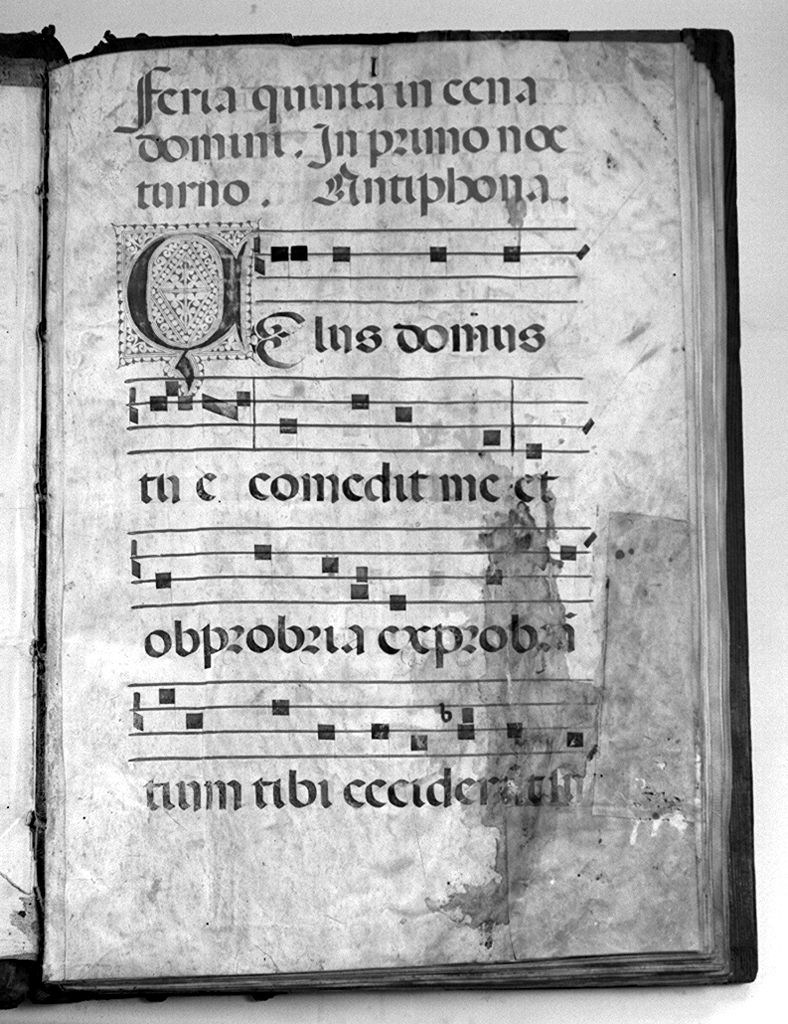 I
Feria quinta in cena
domini. In primo noc
turno. Antiphona.
ZElus domus
tu e comedit me et
obprobria exprobrā
tium tibi ceciderūt